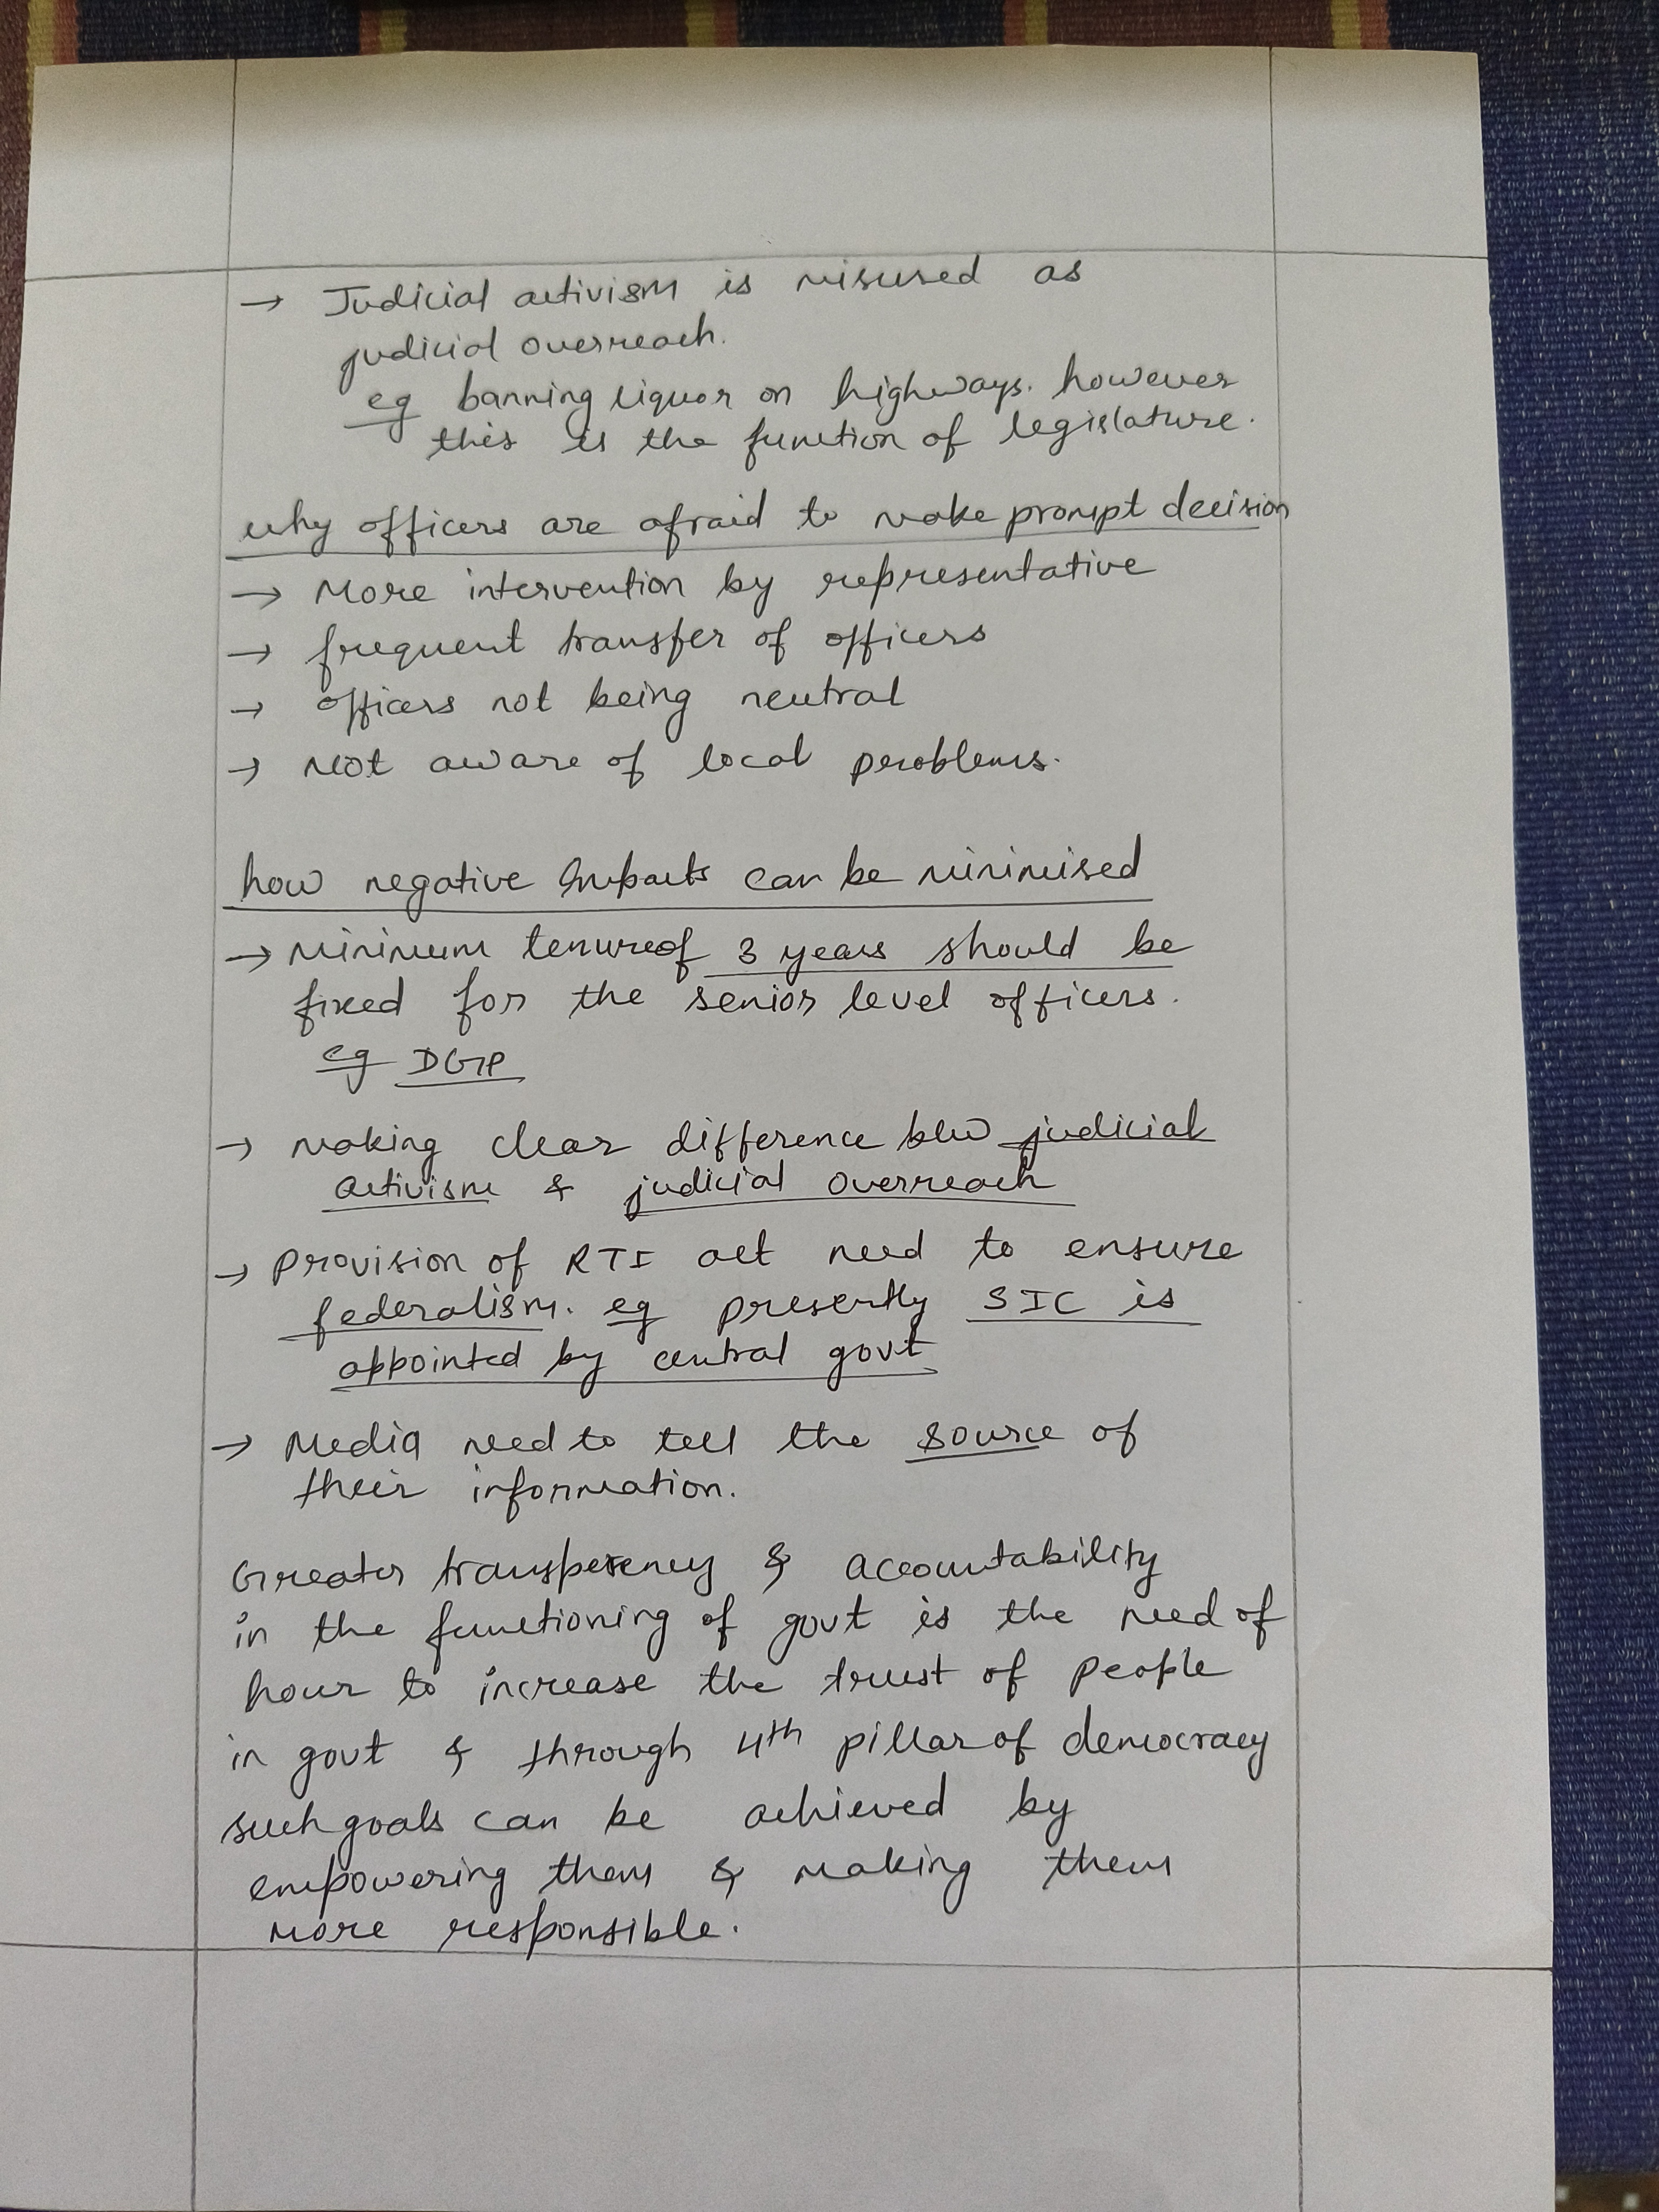 → Judicial activism is misused as
judicial overreach.
eg banning liquor on highways. however
this is the function of legislature.
why officers are afraid to make prompt decision
→ More intervention by representative
→ frequent transfer of officers
→ officers not being neutral
→ Not aware of local problems.
how negative impacts can be minimised
→ Minimum tenure of 3 years should be
fixed for the senior level officers.
eg DGP
→ Making clear difference b/w judicial
activism & judicial overreach
→ Provision of RTI act need to ensure
federalism. eg presently SIC is
appointed by central govt
→ Media need to tell the source of
their information.
Greater transperency & accountability
in the functioning of govt is the need of
hour to increase the trust of people
in govt & through 4th pillar of democracy
such goals can be achieved by
empowering them & making them
more responsible.